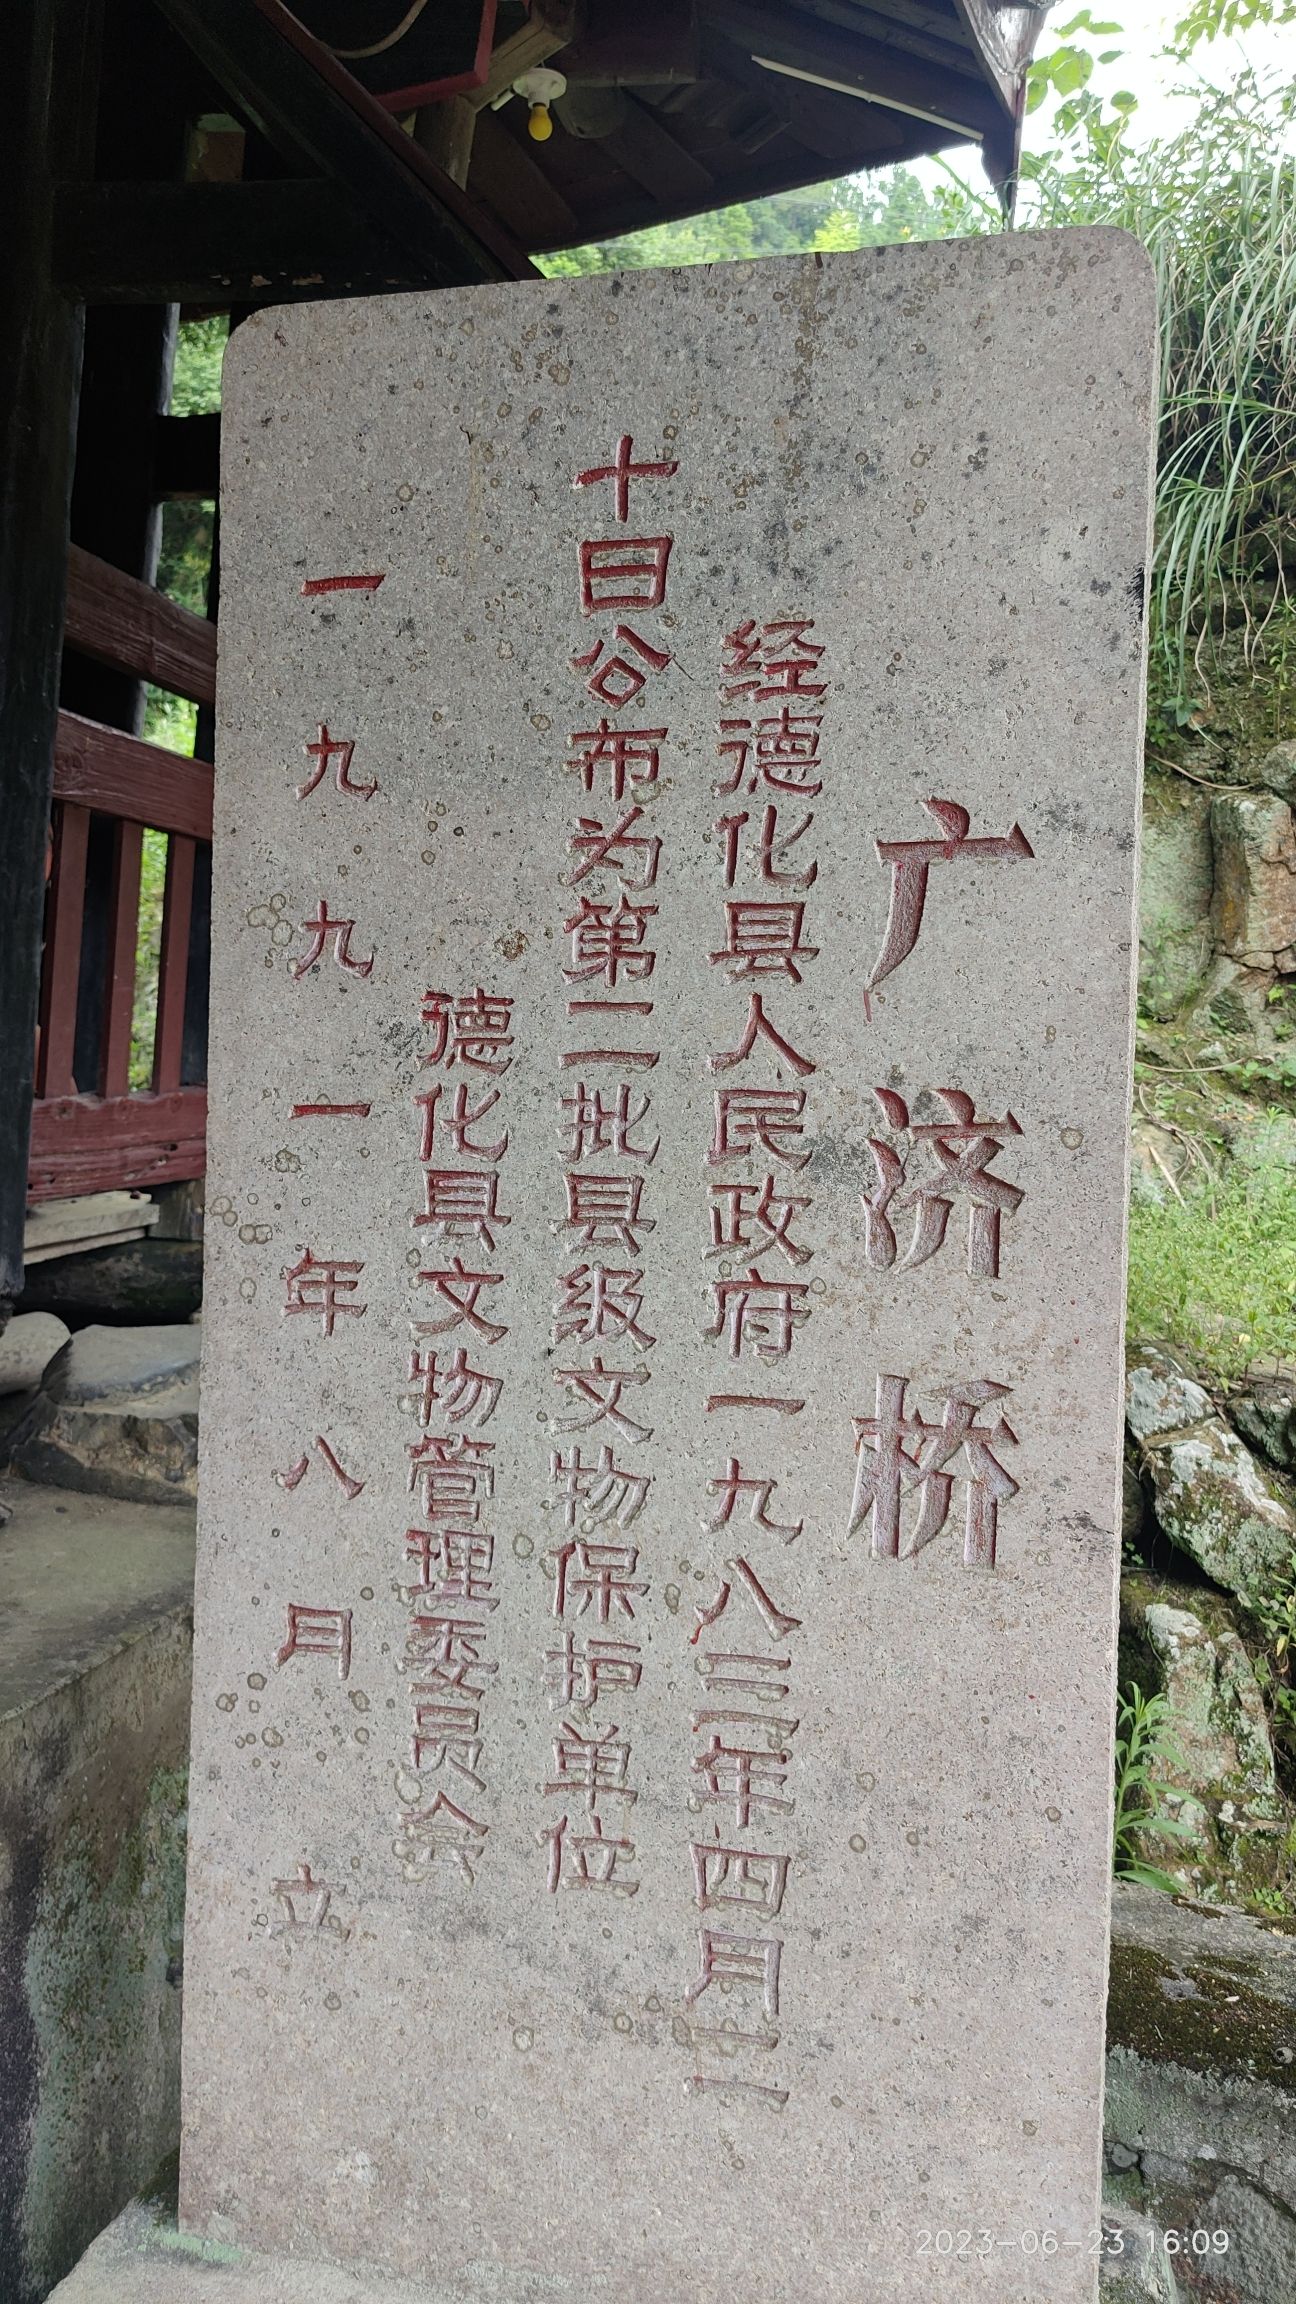 广济桥
经德化县人民政府一九八三年四月二
十日公布为第二批县级文物保护单位
德化县文物管理委员会
一九九一年八月立
2023-06-23 16:09